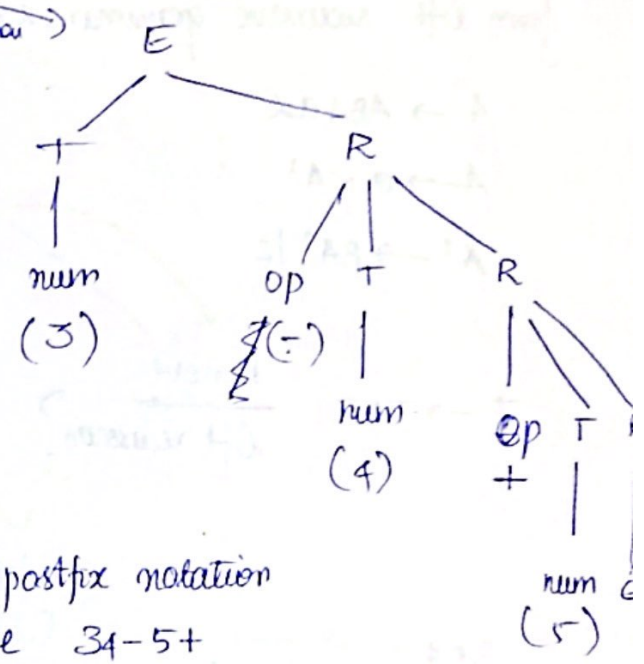 E
T R
num op T R
(3) (-) num Op T
(4) +
num
(5)
postfix notation
34-5+